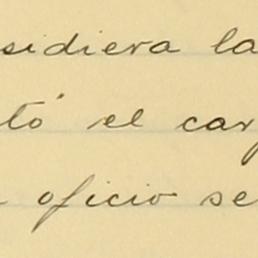 sidiera la
tó el car
oficio se